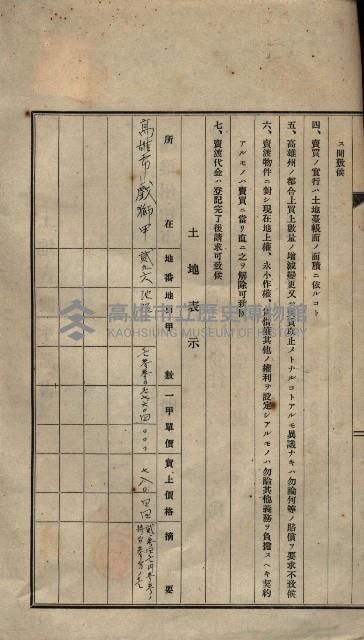 ス間敷候
四、賣買ノ實行ハ土地臺帳面ノ面積ニ依ルコト
五、高雄州ノ都合上買上數量ノ增減變更又ハ賣買取止メトナルコトアルモ異議ナキハ勿論何等ノ賠償ヲ要求不致候
六、賣渡物件ニ對シ現在地上權、永小作權、賃借權其他ノ權利ヲ設定シアルモノハ勿論其他義務ヲ負擔スヘキ契約
アルモノハ賣買ニ當リ直ニ之ヲ解除可致候
七、賣渡代金ハ登記完了後請求可致候
土地表示
所在 地番 地目 甲數 一甲單價 賣上價格 摘要
高雄市戲獅甲 貳九六 池
高雄市立歷史博物館
KAOHSIUNG MUSEUM OF HISTORY